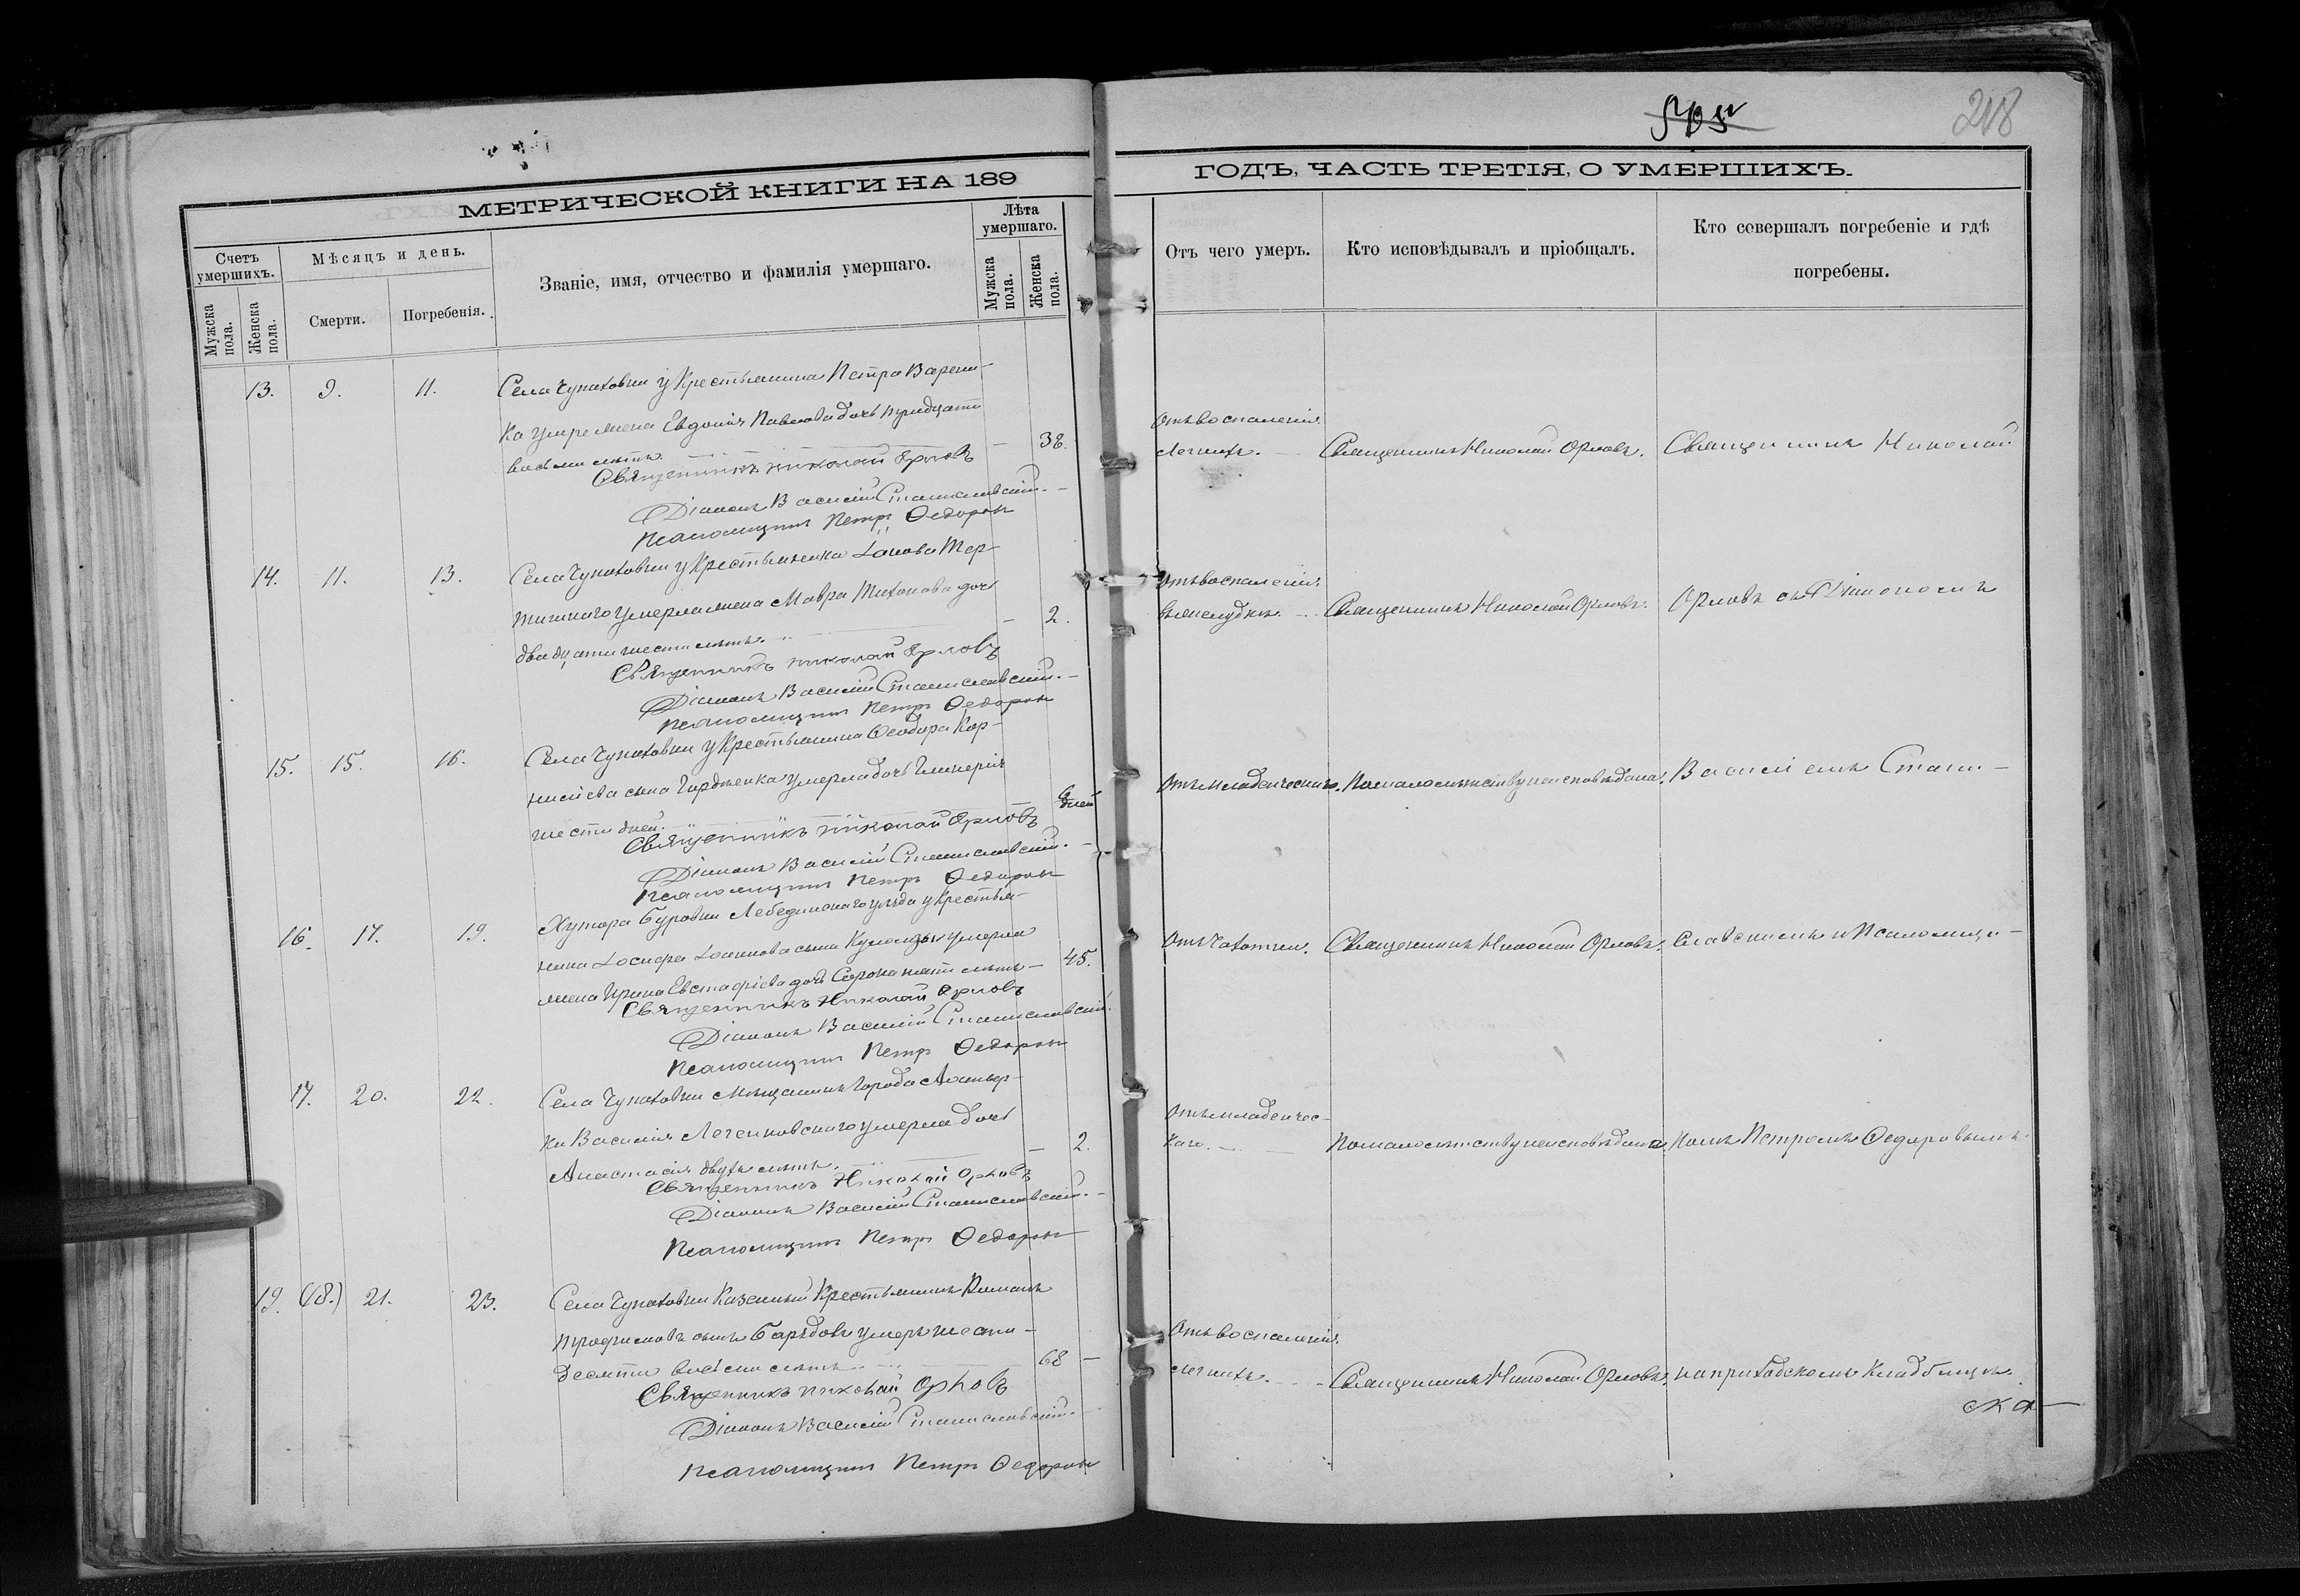 218
МЕТРИЧЕСКОЙ КНИГИ НА 189
ГОДЪ, ЧАСТЬ ТРЕТІЯ, О УМЕРШИХЪ.
Счетъ умершихъ.
Мужска пола.
Женска пола.
Мѣсяцъ и день.
Смерти.
Погребенія.
Званіе, имя, отчество и фамилія умершаго.
Лѣта умершаго.
Мужска пола.
Женска пола.
Отъ чего умеръ.
Кто исповѣдывалъ и пріобщалъ.
Кто совершалъ погребеніе и гдѣ
погребены.
13. 9. 11.
Села Чупаховки у Крестьянина Петра Варени-
ка умре жена Евдокія Павлова дочь тридцати
восьми лѣтъ. — 38.
Отъ воспаленія
легкихъ.
Священникъ Николай Орловъ.
Священникъ Николай
Священникъ Николай Орловъ
Діаконъ Василій Станиславскій.
Псаломщикъ Петръ Ѳедоровъ
14. 11. 13.
Села Чупаховки у Крестьянина Іакова Тер-
тичнаго умерла жена Мавра Тихонова дочь
двадцати шести лѣтъ. — 2.
Отъ воспаленія
въ желудкѣ.
Священникъ Николай Орловъ.
Орловъ съ Діакономъ
Священникъ Николай Орловъ
Діаконъ Василій Станиславскій.
Псаломщикъ Петръ Ѳедоровъ
15. 15. 16.
Села Чупаховки у Крестьянина Ѳеодора Кор-
нилієва сына Гордѣенка умерла дочь Гликерія
шести дней. 6 дней
Отъ младенческаго.
По малолѣтству неисповѣдана.
Василіемъ Стани-
Священникъ Николай Орловъ
Діаконъ Василій Станиславскій.
Псаломщикъ Петръ Ѳедоровъ
16. 17. 19.
Хутора Буровки Лебединскаго уѣзда у крестья-
нина Іосифа Іоаннова сына умерла
жена Ирина Евстафіева дочь Сорока пяти лѣтъ — 45.
Отъ Чахотки.
Священникъ Николай Орловъ.
славскимъ и Псаломщи-
Священникъ Николай Орловъ
Діаконъ Василій Станиславскій.
Псаломщикъ Петръ Ѳедоровъ
17. 20. 22.
Села Чупаховки Мѣщанина Города Ахтыр-
ки Василія умерла дочь
Анастасія двухъ лѣтъ. — 2.
Отъ младенчес-
каго.
По малолѣтству неисповѣдана
комъ Петромъ Ѳедоровымъ
Священникъ Николай Орловъ
Діаконъ Василій Станиславскій.
Псаломщикъ Петръ Ѳедоровъ
19. (18.) 21. 23.
Села Чупаховки Казенный Крестьянинъ Романъ
Трофимовъ сынъ умеръ шести-
десяти восьми лѣтъ 68 —
Отъ воспаленія
легкихъ.
Священникъ Николай Орловъ.
на приходскомъ кладбищѣ.
Священникъ Николай Орловъ
Діаконъ Василій Станиславскій.
Псаломщикъ Петръ Ѳедоровъ